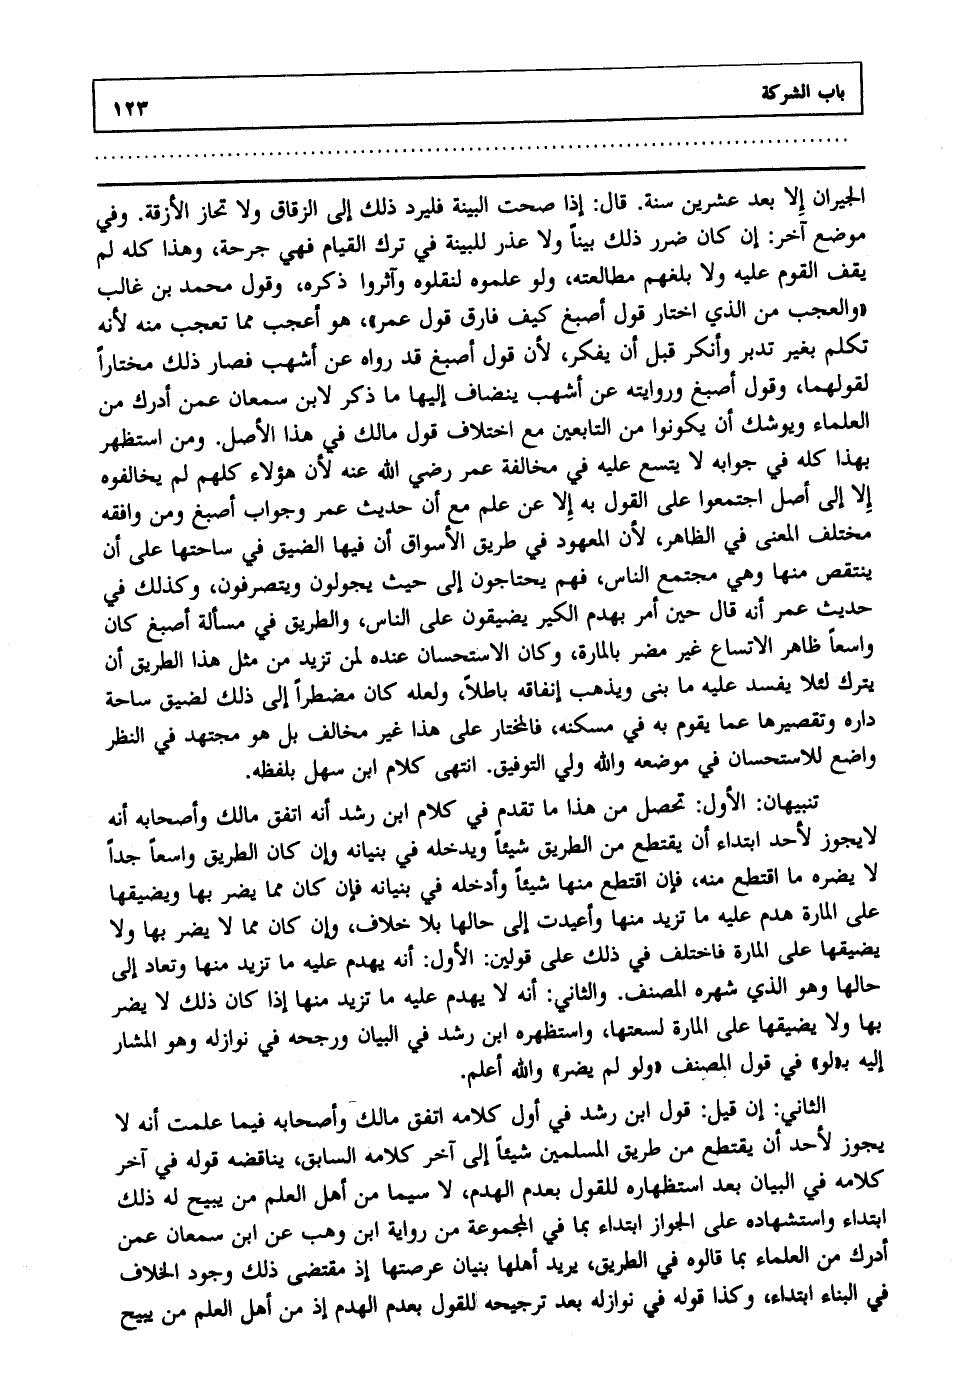 باب الشركة
١٢٣
الجيران إلا بعد عشرين سنة. قال: إذا صحت البينة فليرد ذلك إلى الزقاق ولا تحاز الأزقة. وفي
موضع آخر: إن كان ضرر ذلك بيناً ولا عذر للبينة في ترك القيام فهي جرحة، وهذا كله لم
يقف القوم عليه ولا بلغهم مطالعته، ولو علموه لنقلوه وآثروا ذكره، وقول محمد بن غالب
«والعجب من الذي اختار قول أصبغ كيف فارق قول عمر»، هو أعجب مما تعجب منه لأنه
تكلم بغير تدبر وأنكر قبل أن يفكر، لأن قول أصبغ قد رواه عن أشهب فصار ذلك مختاراً
لقولهما، وقول أصبغ وروايته عن أشهب ينضاف إليها ما ذكر لابن سمعان عمن أدرك من
العلماء ويوشك أن يكونوا من التابعين مع اختلاف قول مالك في هذا الأصل. ومن استظهر
بهذا كله في جوابه لا يتسع عليه في مخالفة عمر رضي الله عنه لأن هؤلاء كلهم لم يخالفوه
إلا إلى أصل اجتمعوا على القول به إلا عن علم مع أن حديث عمر وجواب أصبغ ومن وافقه
مختلف المعنى في الظاهر، لأن المعهود في طريق الأسواق أن فيها الضيق في ساحتها على أن
ينتقص منها وهي مجتمع الناس، فهم يحتاجون إلى حيث يجولون ويتصرفون، وكذلك في
حديث عمر أنه قال حين أمر بهدم الكير يضيقون على الناس، والطريق في مسألة أصبغ كان
واسعاً ظاهر الاتساع غير مضر بالمارة، وكان الاستحسان عنده لمن تزيد من مثل هذا الطريق أن
يترك لئلا يفسد عليه ما بنى ويذهب إنفاقه باطلاً، ولعله كان مضطراً إلى ذلك لضيق ساحة
داره وتقصيرها عما يقوم به في مسكنه، فالمختار على هذا غير مخالف بل هو مجتهد في النظر
واضع للاستحسان في موضعه والله ولي التوفيق. انتهى كلام ابن سهل بلفظه.
تنبيهان: الأول: تحصل من هذا ما تقدم في كلام ابن رشد أنه اتفق مالك وأصحابه أنه
لايجوز لأحد ابتداء أن يقتطع من الطريق شيئاً ويدخله في بنيانه وإن كان الطريق واسعاً جداً
لا يضره ما اقتطع منه، فإن اقتطع منها شيئاً وأدخله في بنيانه فإن كان مما يضر بها ويضيقها
على المارة هدم عليه ما تزيد منها وأعيدت إلى حالها بلا خلاف، وإن كان مما لا يضر بها ولا
يضيقها على المارة فاختلف في ذلك على قولين: الأول: أنه يهدم عليه ما تزيد منها وتعاد إلى
حالها وهو الذي شهره المصنف. والثاني: أنه لا يهدم عليه ما تزيد منها إذا كان ذلك لا يضر
بها ولا يضيقها على المارة لسعتها، واستظهره ابن رشد في البيان ورجحه في نوازله وهو المشار
إليه بـ«لو» في قول المصنف «ولو لم يضر» والله أعلم.
الثاني: إن قيل: قول ابن رشد في أول كلامه اتفق مالك وأصحابه فيما علمت أنه لا
يجوز لأحد أن يقتطع من طريق المسلمين شيئاً إلى آخر كلامه السابق، يناقضه قوله في آخر
كلامه في البيان بعد استظهاره للقول بعدم الهدم، لا سيما من أهل العلم من يبيح له ذلك
ابتداء واستشهاده على الجواز ابتداء بما في المجموعة من رواية ابن وهب عن ابن سمعان عمن
أدرك من العلماء بما قالوه في الطريق، يريد أهلها بنيان عرصتها إذ مقتضى ذلك وجود الخلاف
في البناء ابتداء، وكذا قوله في نوازله بعد ترجيحه للقول بعدم الهدم إذ من أهل العلم من يبيح